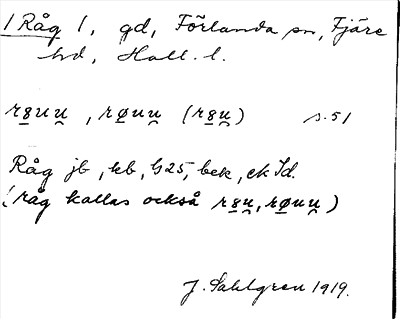 / Råg 1, gd, Förlanda sn, Fjäre
hd, Hall. l.
rꞡuu̯, røuu̯ (rꞡu̯) s. 51
Råg jb, kb, G25, bek, ek Id.
(råg kallas också rꞡu̯, røuu̯)
J. Sahlgren 1919.